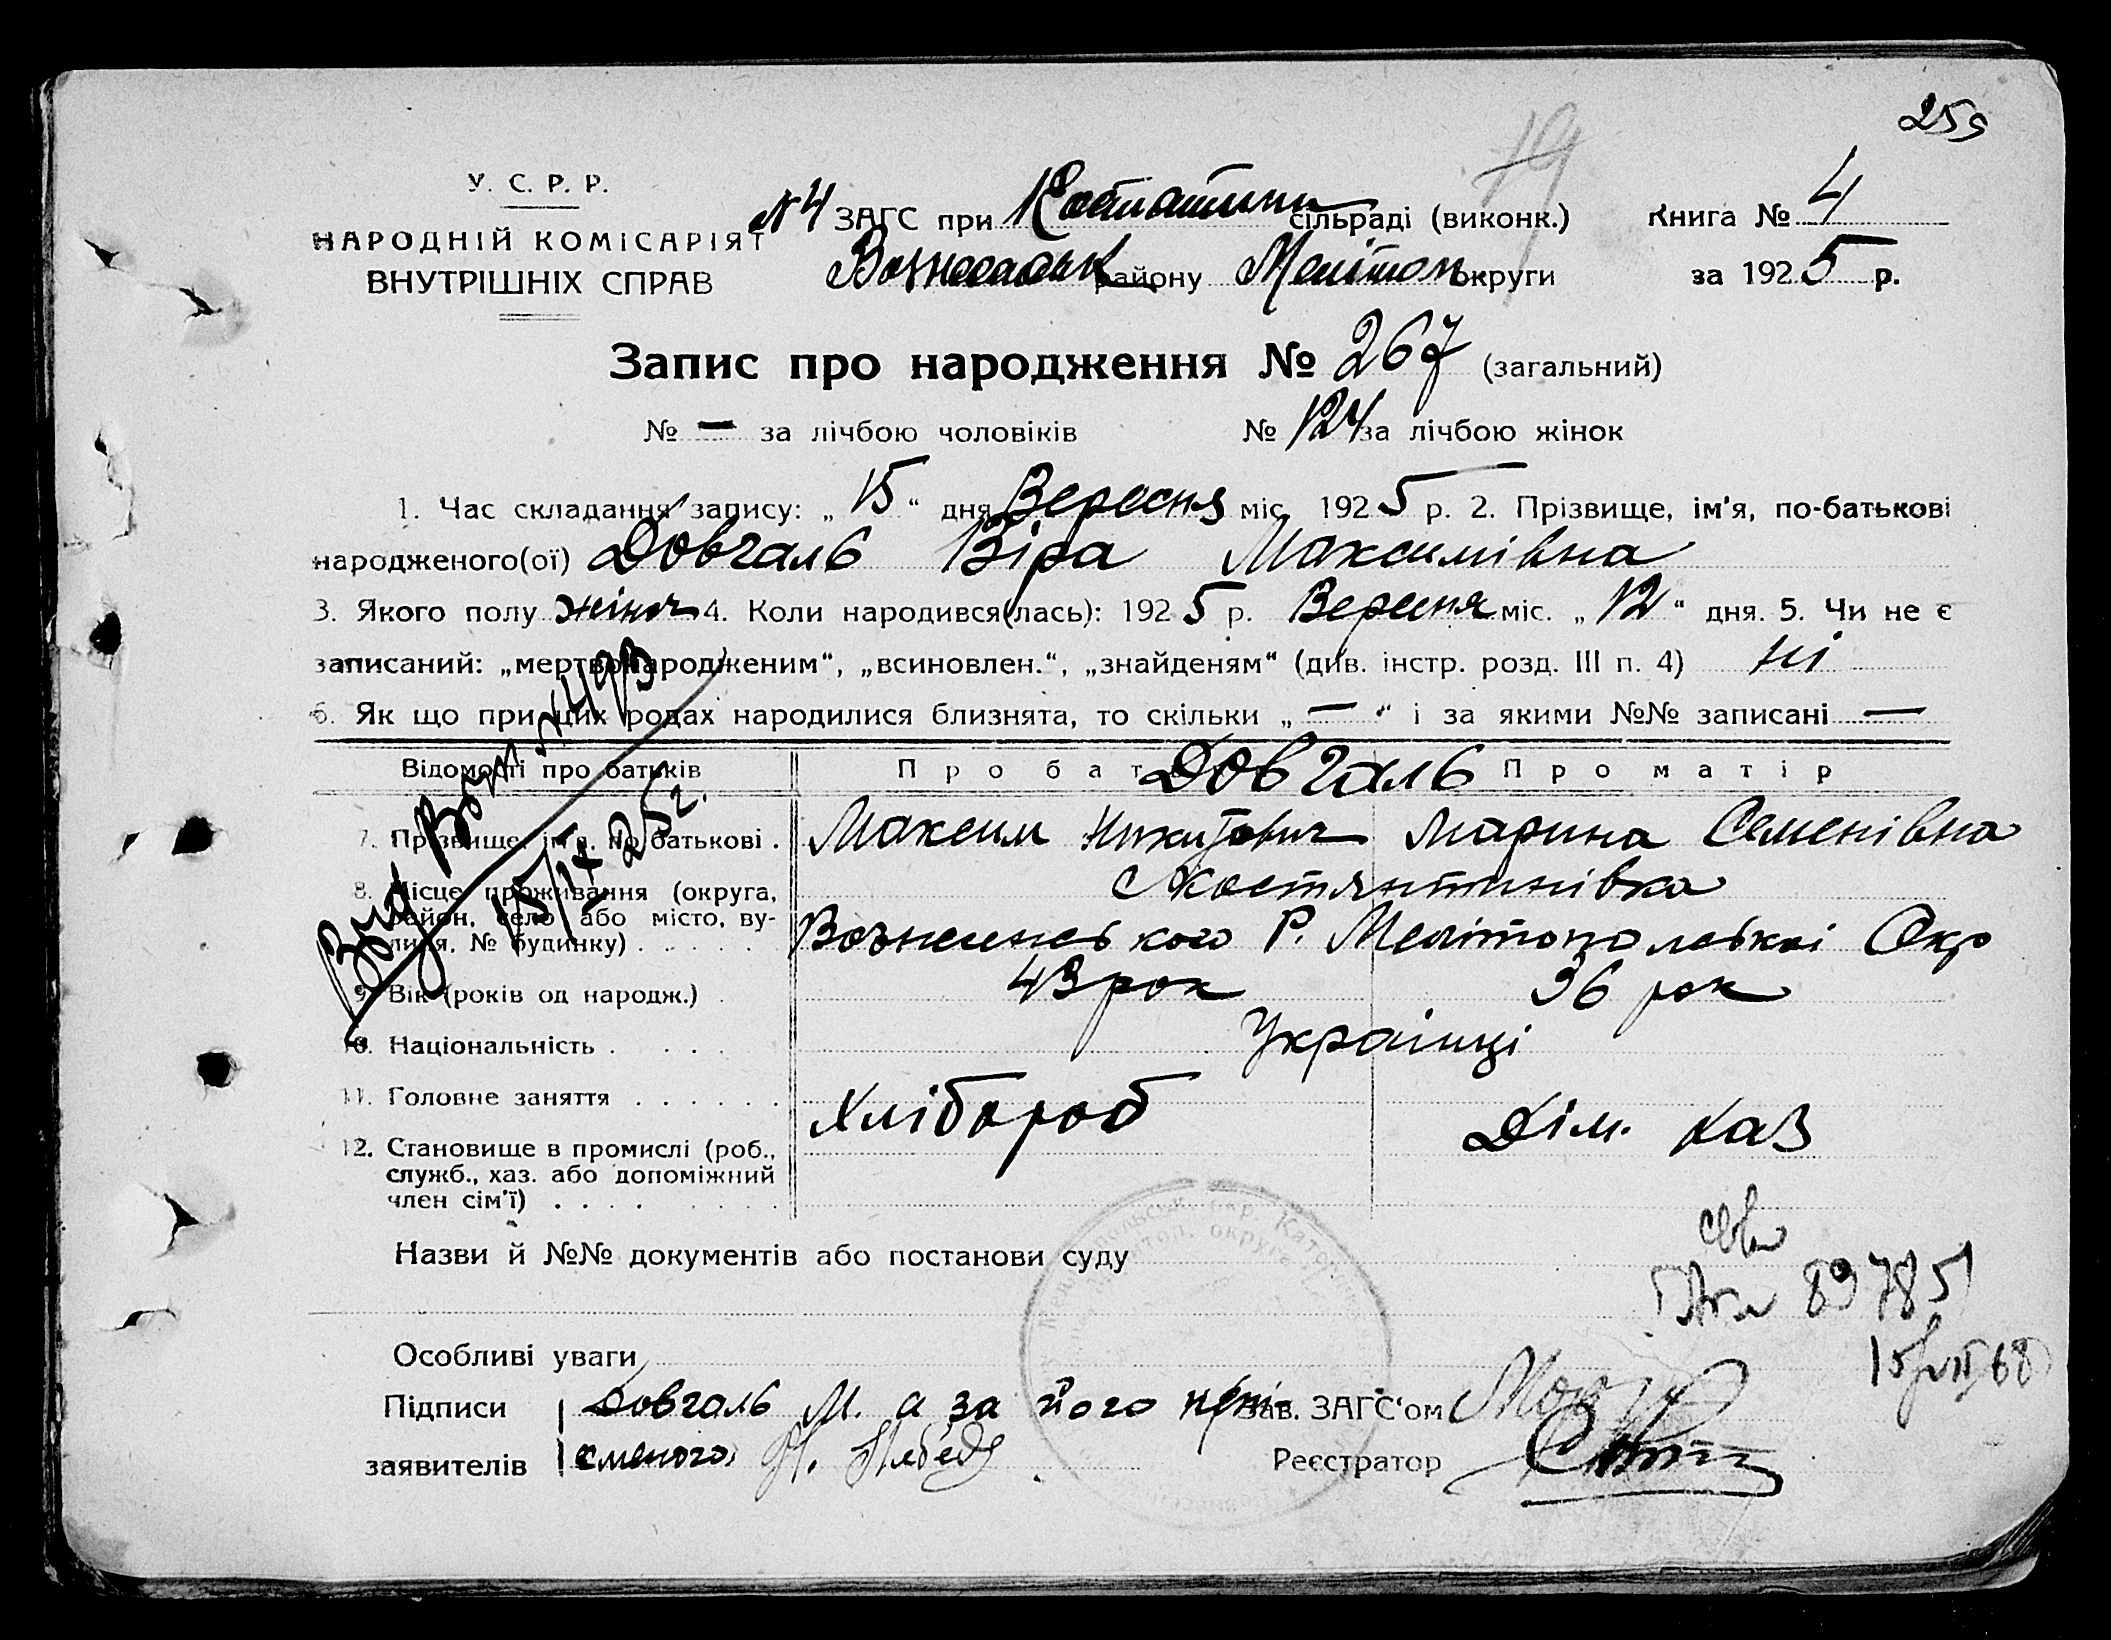 255
19
У. С. Р. Р.
НАРОДНІЙ КОМІСАРІЯТ
ВНУТРІШНІХ СПРАВ
№4 ЗАГС при сільраді (виконк.) Книга № 4
району Мелітоп. округи за 1925 р.
Запис про народження № 267 (загальний)
№ — за лічбою чоловіків № 124 за лічбою жінок
1. Час складання запису: „15“ дня Вересня міс. 1925 р. 2. Прізвище, ім'я, по-батькові
народженого(ої) Довгаль Віра Максимівна
3. Якого полу жіноч 4. Коли народився(лась): 1925 р. Вересня міс. „12“ дня. 5. Чи не є
записаний: „мертвонародженим“, „всиновлен.“, „знайденям“ (див. інстр. розд. III п. 4) ні
6. Як що при цих родах народилися близнята, то скільки „—“ і за якими №№ записані —
Відомості про батьків Про батька Довгаль Про матір
7. Прізвище, ім'я, по батькові . Максим Никитович Марина Семенівна
8. Місце проживання (округа, район, село або місто, вулиця, № будинку) . . . . . с Костянтинівка
Вознесенського Р. Мелітопольскої Окр
9. Вік (років од народж.) . 43 рок 36 рок
10. Національність . . . . Українці
11. Головне заняття . . . . . . Хлібороб Дім. хаз
12. Становище в промислі (роб.,
служб., хаз. або допоміжний
член сім'ї) . . . . . . . .
Вид Вот № 493
15/IX 25 г.
Назви й №№ документів або постанови суду
89785
15/VII 68
Особливі уваги
Підписи Довгаль М. а за його непи- Зав. ЗАГС'ом
заявителів сменого Реєстратор